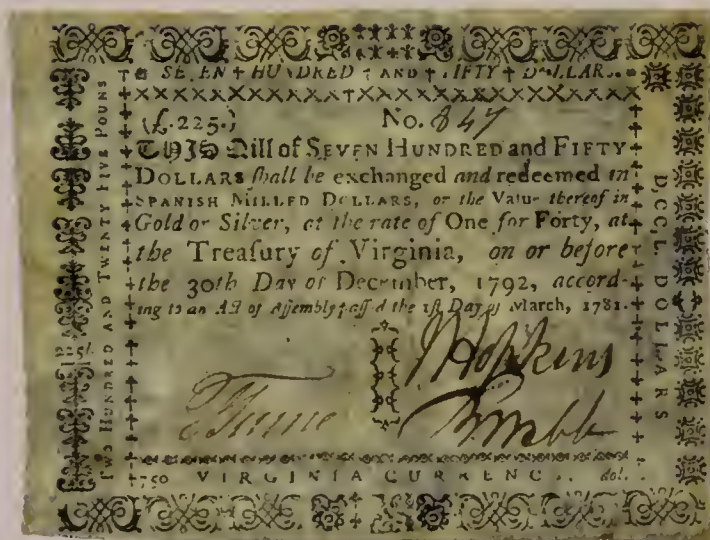 SEVEN + HUNDRED + AND + FIFTY + DOLLARS
(£.225.) No. 847
THIS Bill of SEVEN HUNDRED and FIFTY
DOLLARS ſhall be exchanged and redeemed in
SPANISH MILLED DOLLARS, or the Value thereof in
Gold or Silver, at the rate of One for Forty, at
the Treaſury of Virginia, on or before
the 30th Day of December, 1792, accord-
ing to an Act of Aſſembly paſſed the 1ſt Day of March, 1781.
J Hopkins
B Webb
750 VIRGINIA CURRENCY. dol.
TWO HUNDRED AND TWENTY FIVE POUNS
225l.
D,CC,L. DOLLARS